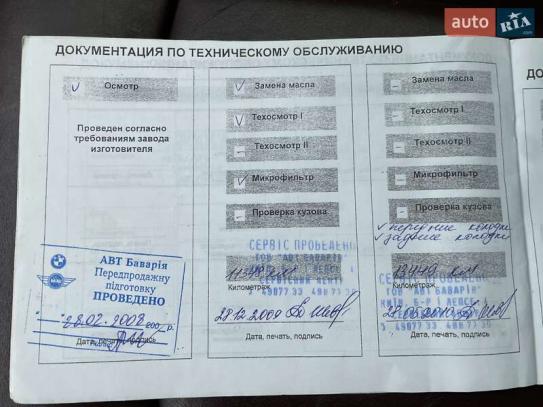 auto RIA.com
ДОКУМЕНТАЦИЯ ПО ТЕХНИЧЕСКОМУ ОБСЛУЖИВАНИЮ
Осмотр
Проведен согласно
требованиям завода
изготовителя
АВТ Баварія
Передпродажну
підготовку
ПРОВЕДЕНО
28.02.2008
Дата, печать, подпись
Замена масла
Техосмотр I
Техосмотр II
Микрофильтр
Проверка кузова
СЕРВІС ПРОВЕДЕНІ
ТОВ "АВТ БАВАРІЯ"
СЕРВІСНИЙ ЦЕНТР
Километраж
28.12.2009
Дата, печать, подпись
Замена масла
Техосмотр I
Техосмотр II
Микрофильтр
Проверка кузова
передние колодки
задние колодки
13449 км
Километраж
Дата, печать, подпись
ДО